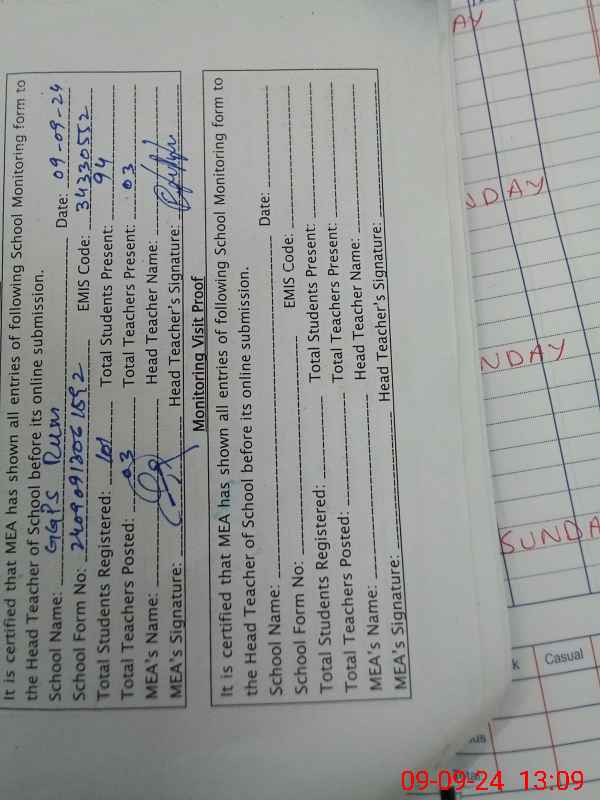 It is certified that MEA has shown all entries of following School Monitoring form to
the Head Teacher of School before its online submission.
School Name: GGPS Rum Date: 09-09-24
School Form No: 24090913061592 EMIS Code: 34330552
Total Students Registered: 101 Total Students Present: 94
Total Teachers Posted: 03 Total Teachers Present: 03
MEA's Name: Head Teacher Name:
MEA's Signature: Head Teacher's Signature:
Monitoring Visit Proof
It is certified that MEA has shown all entries of following School Monitoring form to
the Head Teacher of School before its online submission.
School Name: Date:
School Form No: EMIS Code:
Total Students Registered: Total Students Present:
Total Teachers Posted: Total Teachers Present:
MEA's Name: Head Teacher Name:
MEA's Signature: Head Teacher's Signature:
AY
NDAY
NDAY
SUNDA
k Casual
09-09-24 13:09